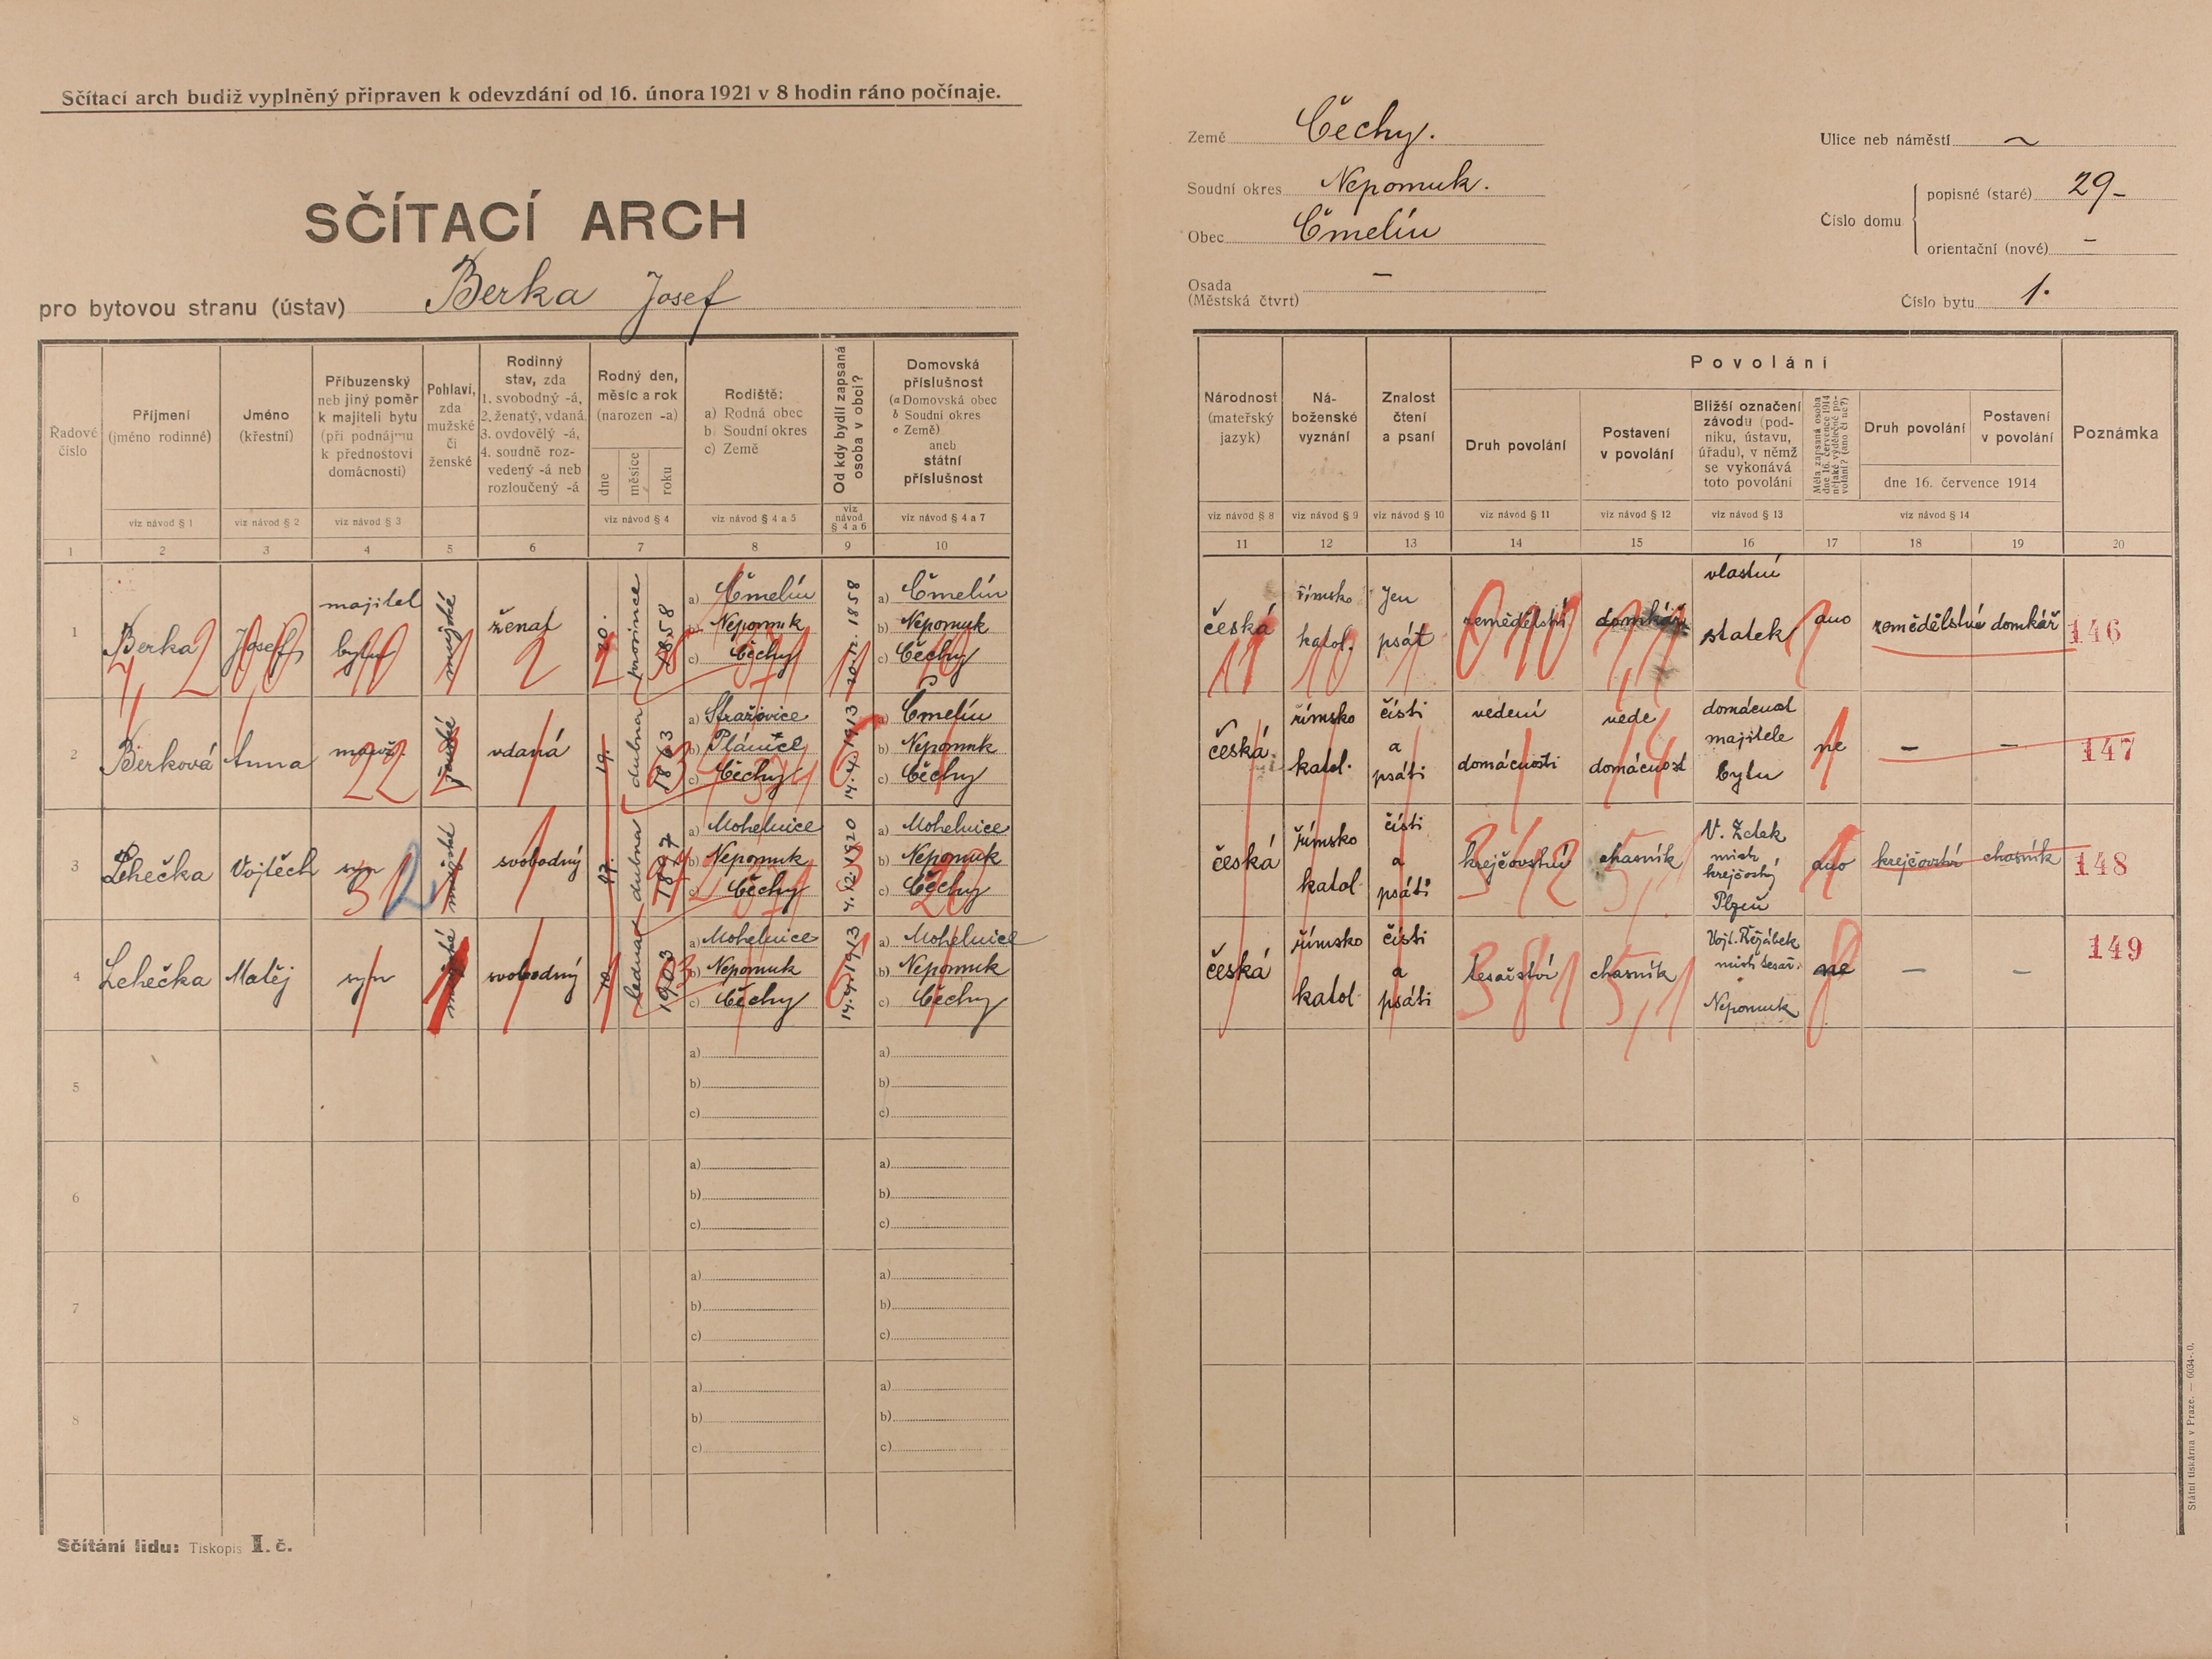 Sčítací arch budiž vyplněný připraven k odevzdání od 16. února 1921 v 8 hodin ráno počínaje.
SČÍTACÍ ARCH
pro bytovou stranu (ústav) Berka Josef
Země Čechy.
Soudní okres Nepomuk.
Obec Čmelín
Osada —
(Městská čtvrt)
Ulice neb náměstí ~
Číslo domu
popisné (staré) 29-
orientační (nové) —
Číslo bytu 1.
Řadové číslo
Příjmení (jméno rodinné)
Jméno (křestní)
Příbuzenský neb jiný poměr k majiteli bytu (při podnájmu k přednostovi domácnosti)
Pohlaví, zda mužské či ženské
Rodinný stav, zda 1. svobodný -á, 2. ženatý, vdaná, 3. ovdovělý -á, 4. soudně rozvedený -á neb rozloučený -á
Rodný den, měsíc a rok (narozen -a)
dne měsíce roku
Rodiště: a) Rodná obec b) Soudní okres c) Země
Od kdy bydlí zapsaná osoba v obci?
Domovská příslušnost (a Domovská obec b Soudní okres c Země) aneb státní příslušnost
viz návod § 1 viz návod § 2 viz návod § 3 viz návod § 4 viz návod § 4 a 5 viz návod § 4 a 6 viz návod § 4 a 7
1 2 3 4 5 6 7 8 9 10
Národnost (mateřský jazyk)
Náboženské vyznání
Znalost čtení a psaní
Povolání
Druh povolání
Postavení v povolání
Bližší označení závodu (podniku, ústavu, úřadu), v němž se vykonává toto povolání
Měla zapsaná osoba dne 16. července 1914 nějaké výdělečné povolání? (ano či ne?)
Druh povolání
Postavení v povolání
dne 16. července 1914
Poznámka
viz návod § 8 viz návod § 9 viz návod § 10 viz návod § 11 viz návod § 12 viz návod § 13 viz návod § 14
11 12 13 14 15 16 17 18 19 20
1 Berka Josef majitel bytu mužské ženat 20. prosince 1858 a) Čmelín b) Nepomuk c) Čechy 20.12.1858 a) Čmelín b) Nepomuk c) Čechy
česká římsko katol. Jen psát zemědělství domkář vlastní statek ano zemědělství domkář 146
2 Berková Anna manž. ženské vdaná 19. dubna 1863 a) Stražovice b) Plánice c) Čechy 14.4.1913 a) Čmelín b) Nepomuk c) Čechy
česká římsko katol. čísti a psáti vedení domácnosti vede domácnost domácnost majitele bytu ne — — 147
3 Lehečka Vojtěch syn mužské svobodný 17. dubna 1897 a) Mohelnice b) Nepomuk c) Čechy 4.12.1920 a) Mohelnice b) Nepomuk c) Čechy
česká římsko katol čísti a psáti krejčovství chasník V. Zdek mistr krejčovský Plzeň ano krejčovství chasník 148
4 Lehečka Matěj syn mužské svobodný 10. ledna 1903 a) Mohelnice b) Nepomuk c) Čechy 14.4.1913 a) Mohelnice b) Nepomuk c) Čechy
česká římsko katol čísti a psáti tesařství chasník Vojt. Řežábek mistr tesař. Nepomuk ne — — 149
5 a) b) c) a) b) c)
6 a) b) c) a) b) c)
7 a) b) c) a) b) c)
8 a) b) c) a) b) c)
Sčítání lidu: Tiskopis I. č.
Státní tiskárna v Praze. — 6034-.0.